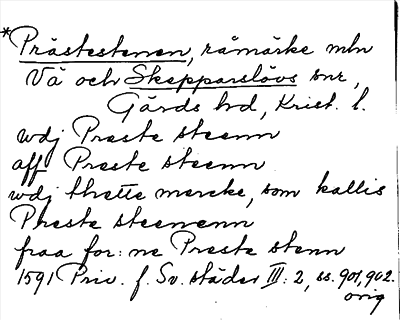 *Prästestenen, råmärke mln
Vä och Skepparslövs snr,
Gärds hd, Krist. l.
wdj Preste steenn
aff Preste steenn
wdj thette mercke, som kallis
Preste steenenn
fraa for: ne Preste stenn
1591 Priv. f. Sv. städer III: 2, ss. 901, 902.
orig